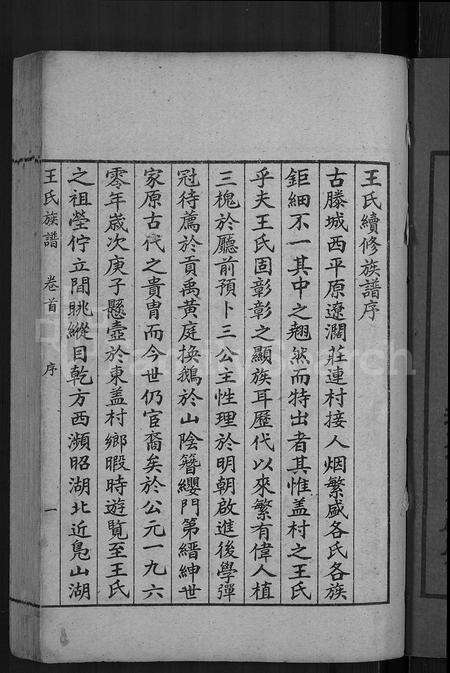 王氏續修族譜序
古滕城西平原遼濶莊連村接人烟繁盛各氏各族
鉅細不一其中之翹然而特出者其惟盖村之王氏
乎夫王氏固彰彰之顯族耳歷代以來繁有偉人植
三槐於廳前預卜三公主性理於明朝啟進後學彈
冠待薦於貢禹黄庭換鵝於山陰簪纓門第縉紳世
家原古代之貴胄而今世仍官裔矣於公元一九六
零年歲次庚子懸壺於東盖村鄉暇時遊覽至王氏
之祖塋佇立閒眺縱目乾方西瀕昭湖北近鳧山湖
王氏族譜 卷首 序 一